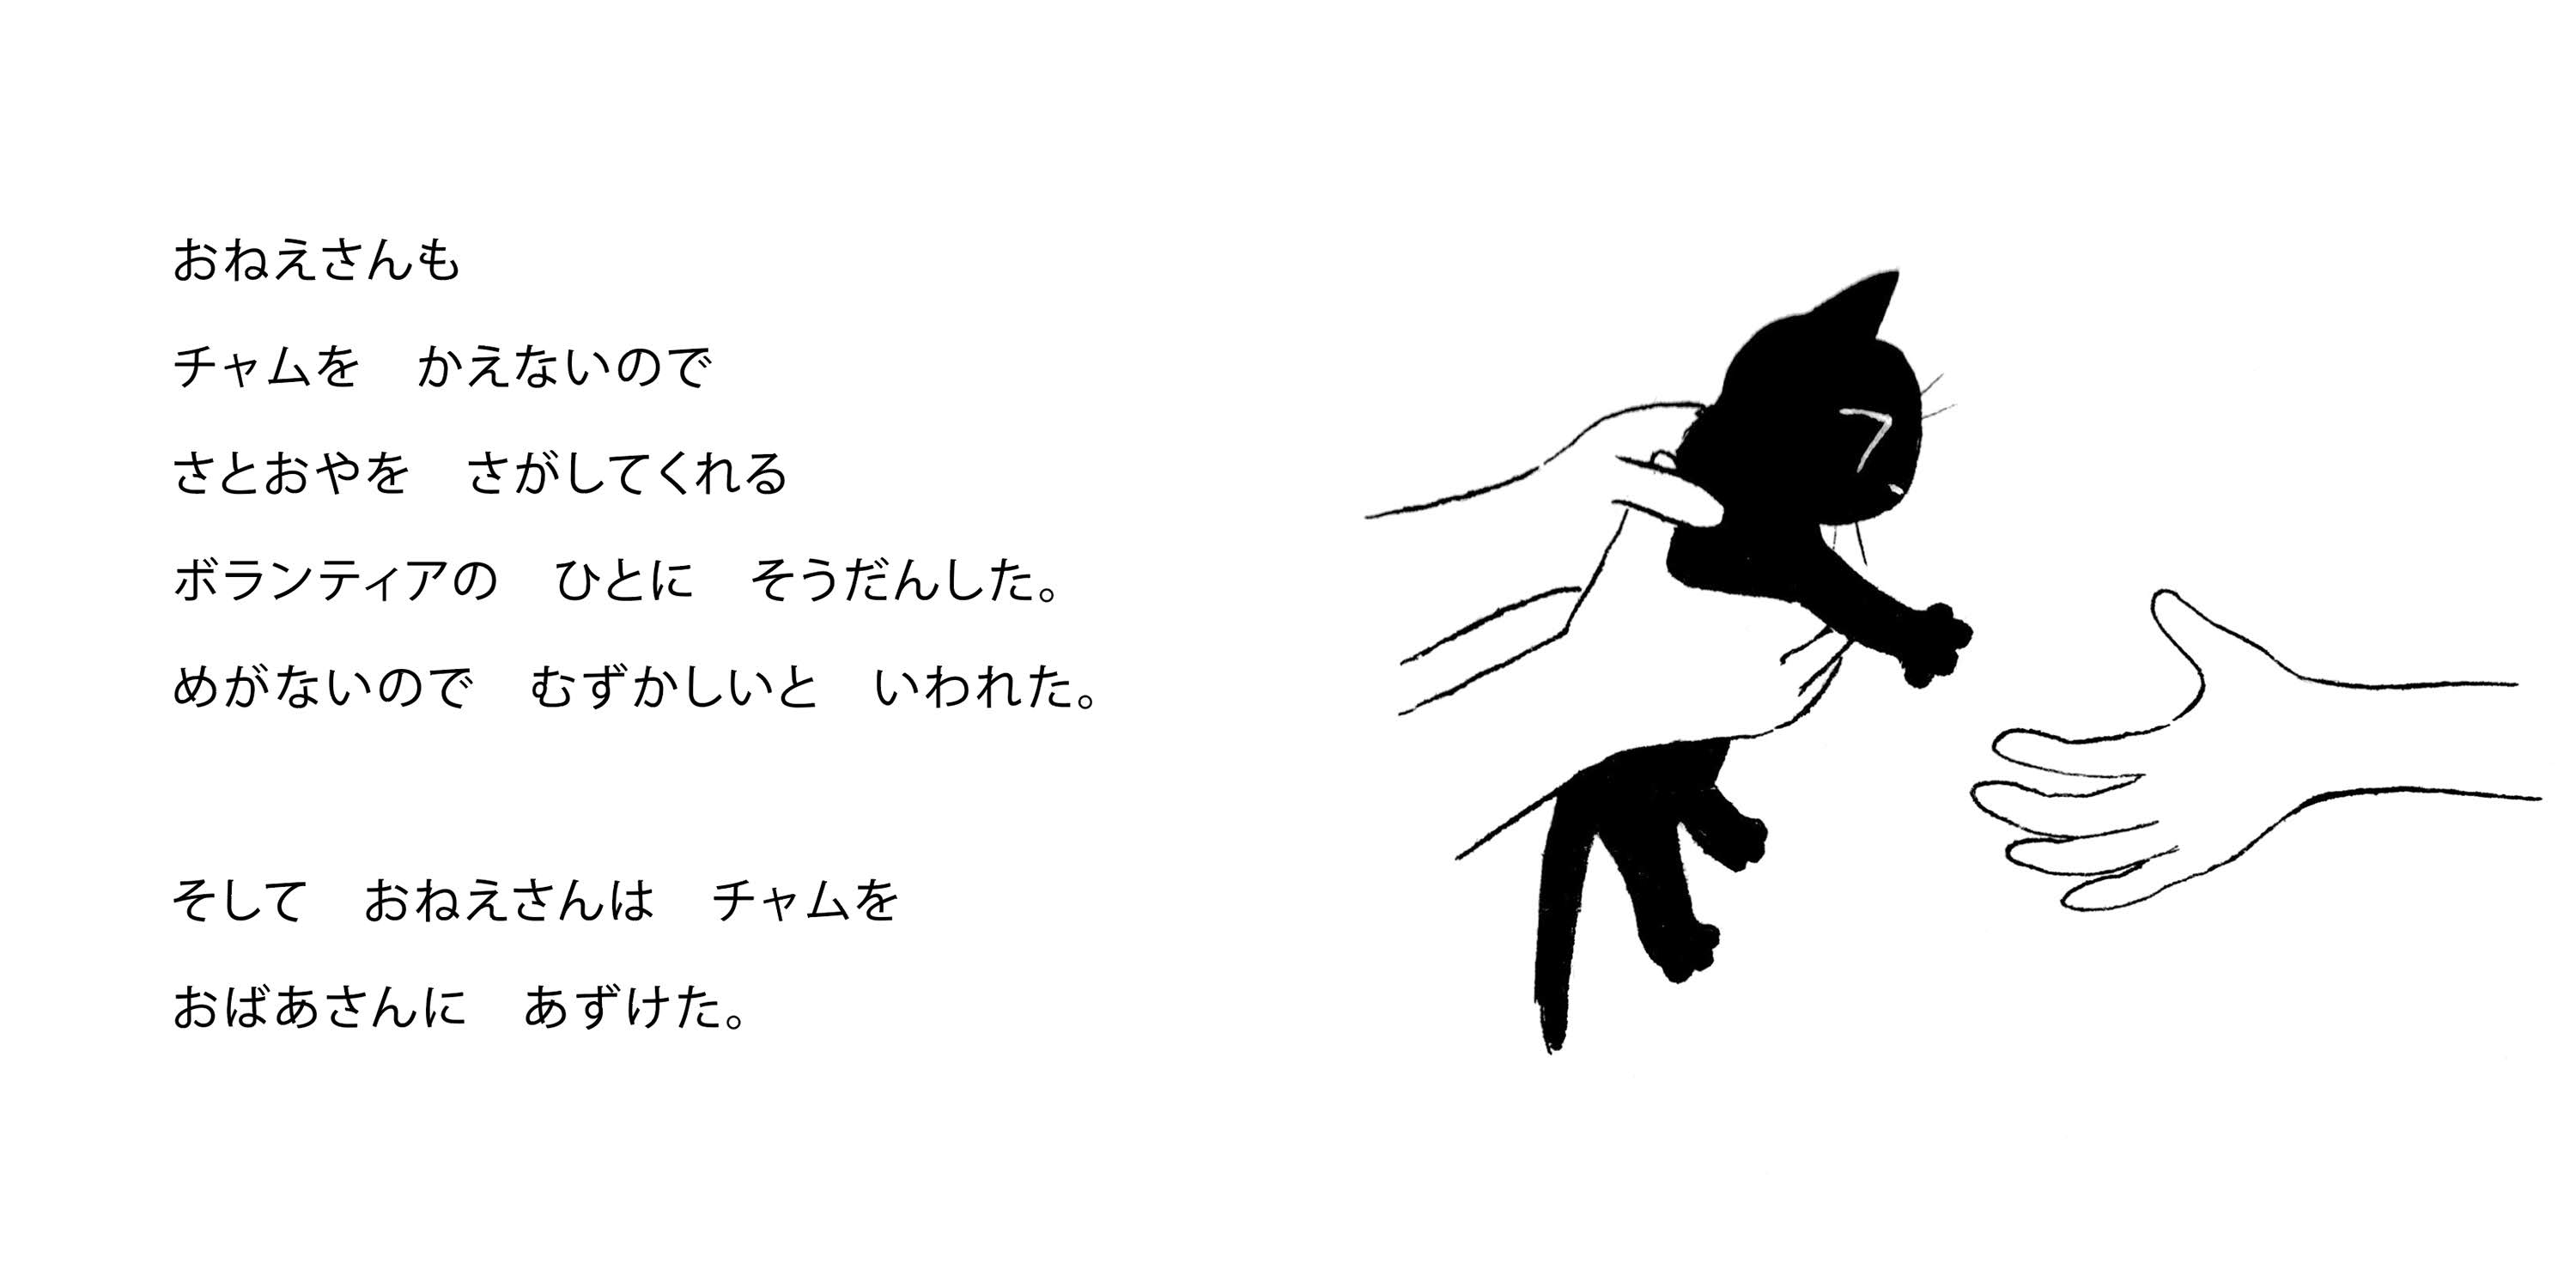 おねえさんも
チャムを　かえないので
さとおやを　さがしてくれる
ボランティアの　ひとに　そうだんした。
めがないので　むずかしいと　いわれた。
そして　おねえさんは　チャムを
おばあさんに　あずけた。